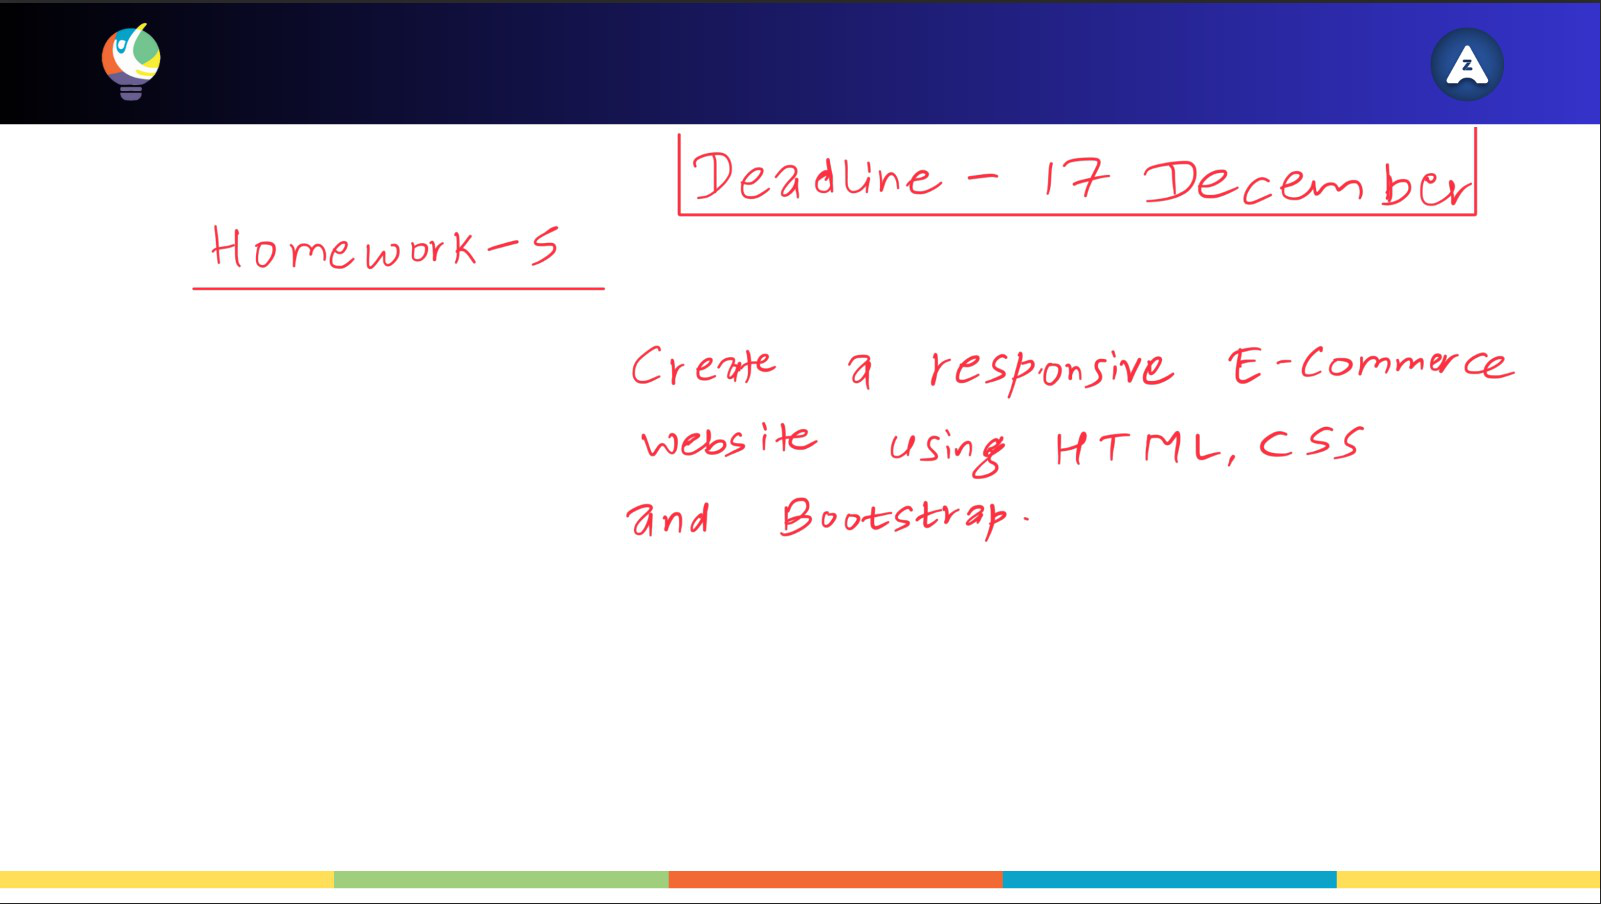 Deadline - 17 December
Homework-5
Create a responsive E-Commerce
website using HTML, CSS
and Bootstrap.
Z